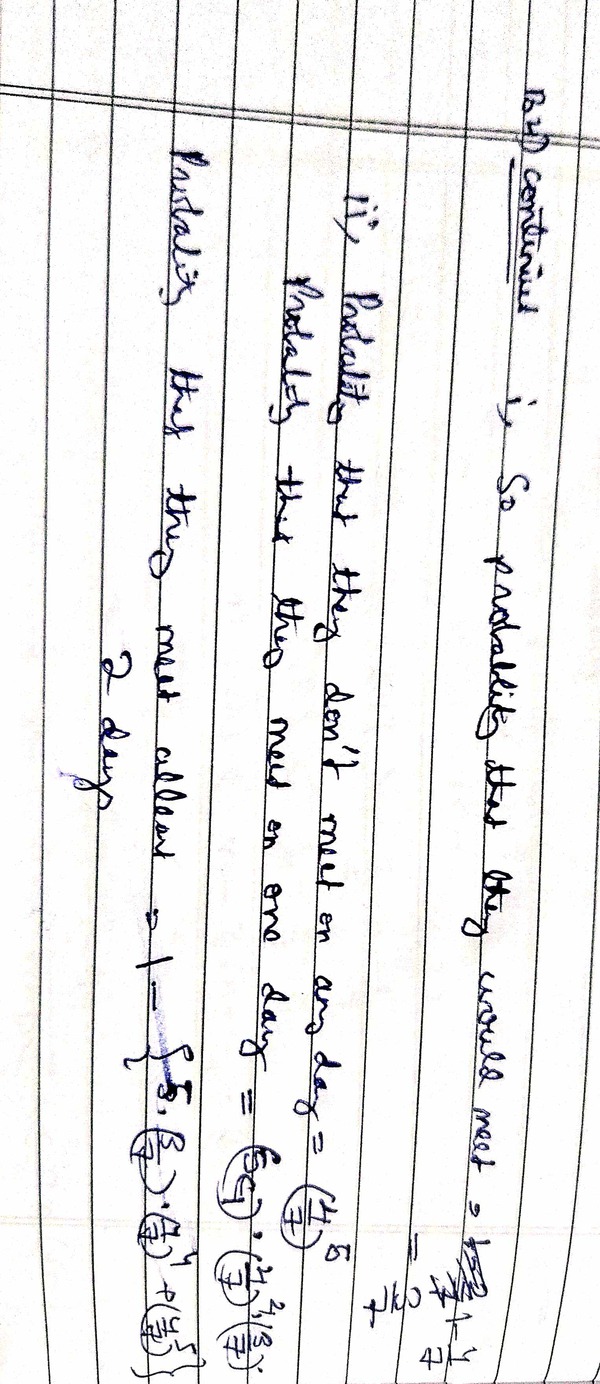 continued i, So probability that they would meet = 1 - 4/7
= 3/7
ii, Probability that they don't meet on any day = (4/7)^5
Probability that they meet on one day = (5C1) . (4/7)^4 (3/7)
Probability that they meet atleast = 1 - { 5 . (3/7) . (4/7)^4 + (4/7)^5 }
2 days